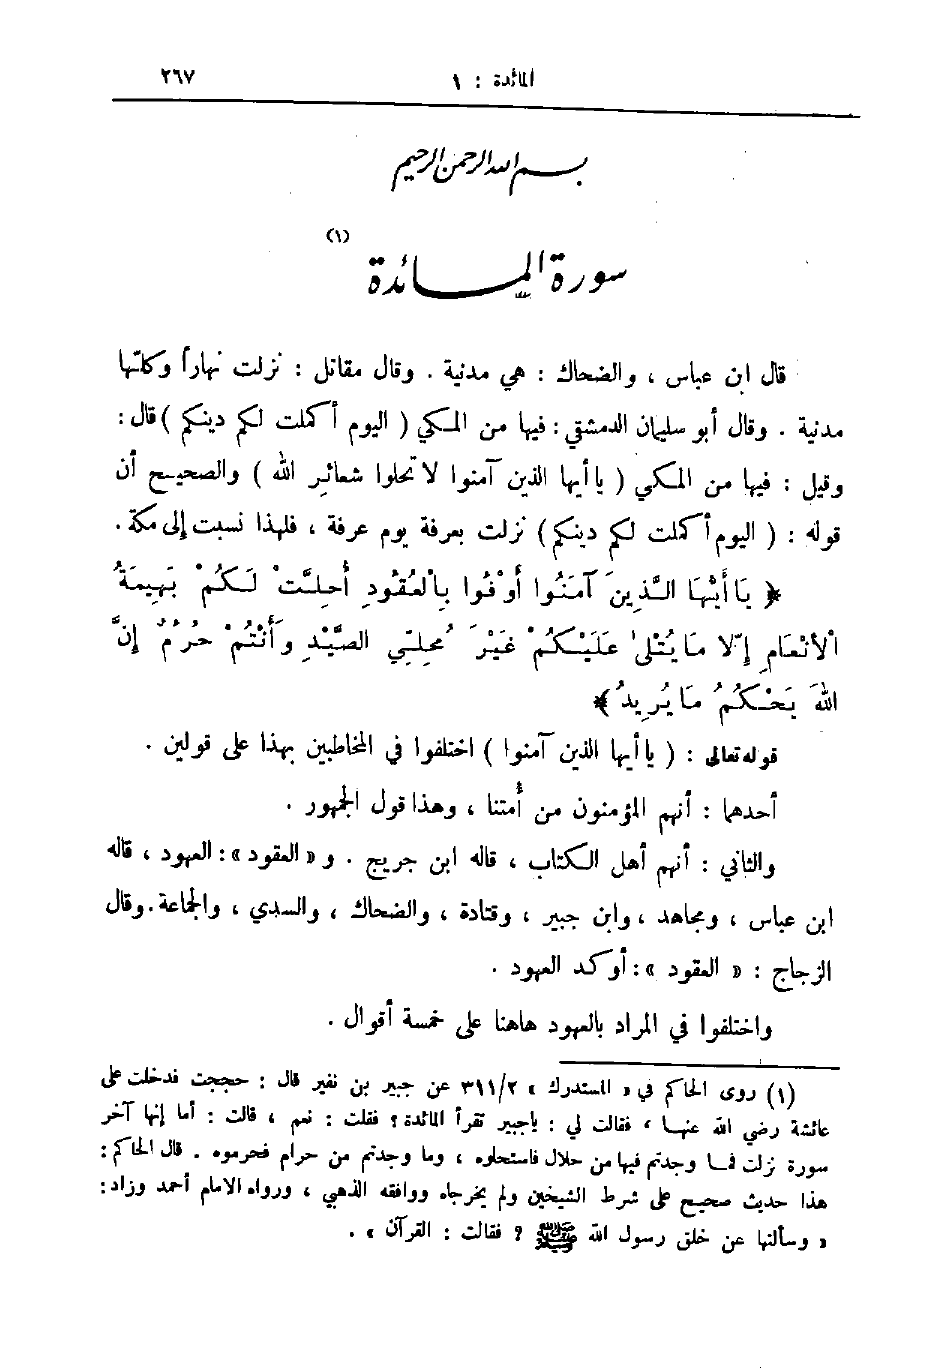 المائدة : ١ ٢٦٧
بسم الله الرحمن الرحيم
سورة المائدة (١)
قال ابن عباس ، والضحاك : هي مدنية . وقال مقاتل : نزلت نهاراً وكلّها
مدنية . وقال أبو سليمان الدمشقي : فيها من المكي ( اليوم أكملت لكم دينكم ) قال :
وقيل : فيها من المكي ( يا أيها الذين آمنوا لا تحلوا شعائر الله ) والصحيح أن
قوله : ( اليوم أكملت لكم دينكم ) نزلت بعرفة يوم عرفة ، فلهذا نسبت إلى مكة .
﴿ يَا أَيُّهَا الَّذِينَ آمَنُوا أَوْفُوا بِالْعُقُودِ أُحِلَّتْ لَكُمْ بَهِيمَةُ
الْأَنْعَامِ إِلَّا مَا يُتْلَىٰ عَلَيْكُمْ غَيْرَ مُحِلِّي الصَّيْدِ وَأَنْتُمْ حُرُمٌ إِنَّ
اللهَ يَحْكُمُ مَا يُرِيدُ ﴾
قوله تعالى : ( يا أيها الذين آمنوا ) اختلفوا في المخاطبين بهذا على قولين .
أحدهما : أنهم المؤمنون من أُمتنا ، وهذا قول الجمهور .
والثاني : أنهم أهل الكتاب ، قاله ابن جريج . و « العقود » : العهود ، قاله
ابن عباس ، ومجاهد ، وابن جبير ، وقتادة ، والضحاك ، والسدي ، والجماعة . وقال
الزجاج : « العقود » : أوكد العهود .
واختلفوا في المراد بالعهود هاهنا على خمسة أقوال .
(١) روى الحاكم في « المستدرك » ٣١١/٢ عن جبير بن نفير قال : حججت فدخلت على
عائشة رضي الله عنها ، فقالت لي : يا جبير تقرأ المائدة ؟ فقلت : نعم ، قالت : أما إنها آخر
سورة نزلت فما وجدتم فيها من حلال فاستحلوه ، وما وجدتم من حرام فحرموه . قال الحاكم :
هذا حديث صحيح على شرط الشيخين ولم يخرجاه ووافقه الذهبي ، ورواه الامام أحمد وزاد :
« وسألتها عن خلق رسول الله ﷺ ؟ فقالت : القرآن » .